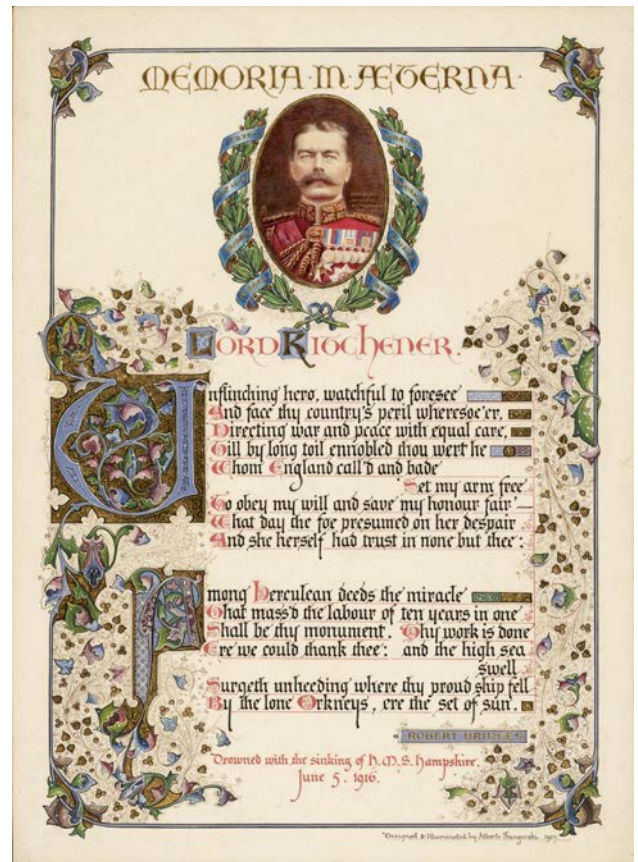 MEMORIA · IN · ÆTERNA ·
LORD KITCHENER.
Unflinching hero, watchful to foresee
And face thy country's peril wheresoe'er,
Directing war and peace with equal care,
Till by long toil ennobled thou wert he
Whom England call'd and bade
Set my arm free
To obey my will and save my honour fair —
What day the foe presumed on her despair
And she herself had trust in none but thee:
Among Herculean deeds the miracle
That mass'd the labour of ten years in one
Shall be thy monument. Thy work is done
Ere we could thank thee: and the high sea
swell
Surgeth unheeding where thy proud ship fell
By the lone Orkneys, ere the set of sun.
ROBERT BRIDGES
Drowned with the sinking of H.M.S. Hampshire.
June 5. 1916.
Designed & Illuminated by Alberto Sangorski.